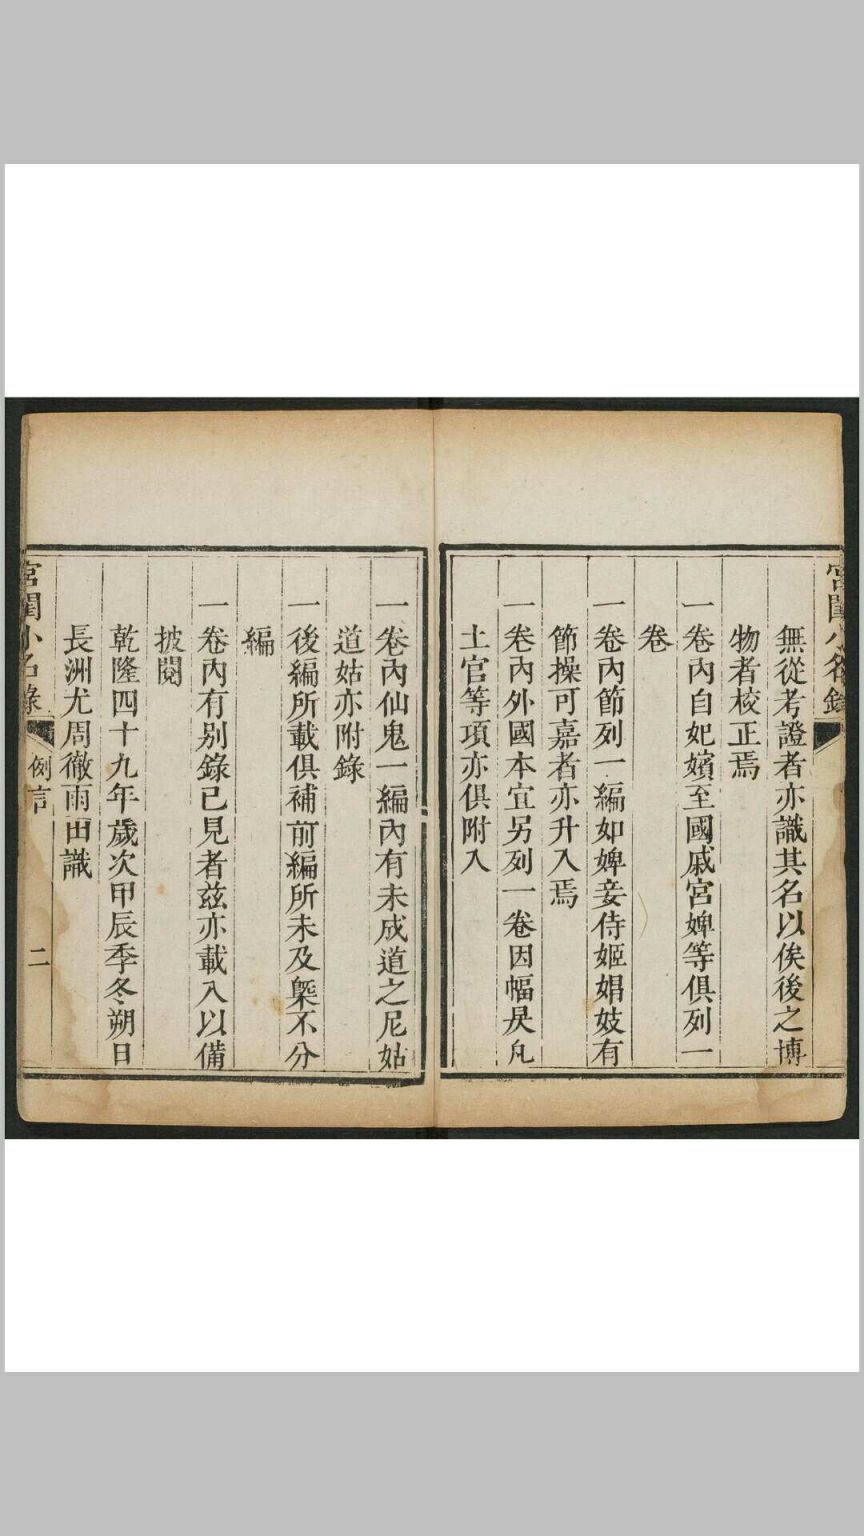 宮閨小名錄
無從考證者亦識其名以俟後之博
物者校正焉
一卷內自妃嬪至國戚宮婢等俱列一
卷
一卷內節列一編如婢妾侍姬娼妓有
節操可嘉者亦升入焉
一卷內外國本宜另列一卷因幅仄凡
土官等項亦俱附入
一卷內仙鬼一編內有未成道之尼姑
道姑亦附錄
一後編所載俱補前編所未及槩不分
編
一卷內有别錄已見者茲亦載入以備
披閱
乾隆四十九年歲次甲辰季冬朔日
長洲尤周徹雨田識
宮閨小名錄 例言 二